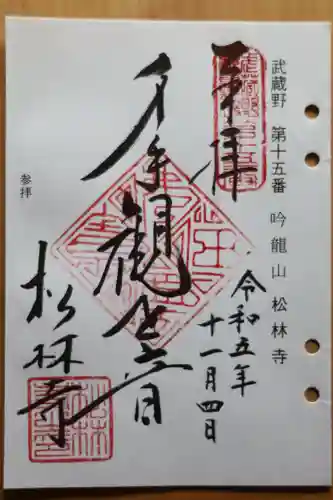 武蔵野 第十五番 吟龍山 松林寺
奉拝
令和五年
十一月四日
千手観世音
松林寺
参拝